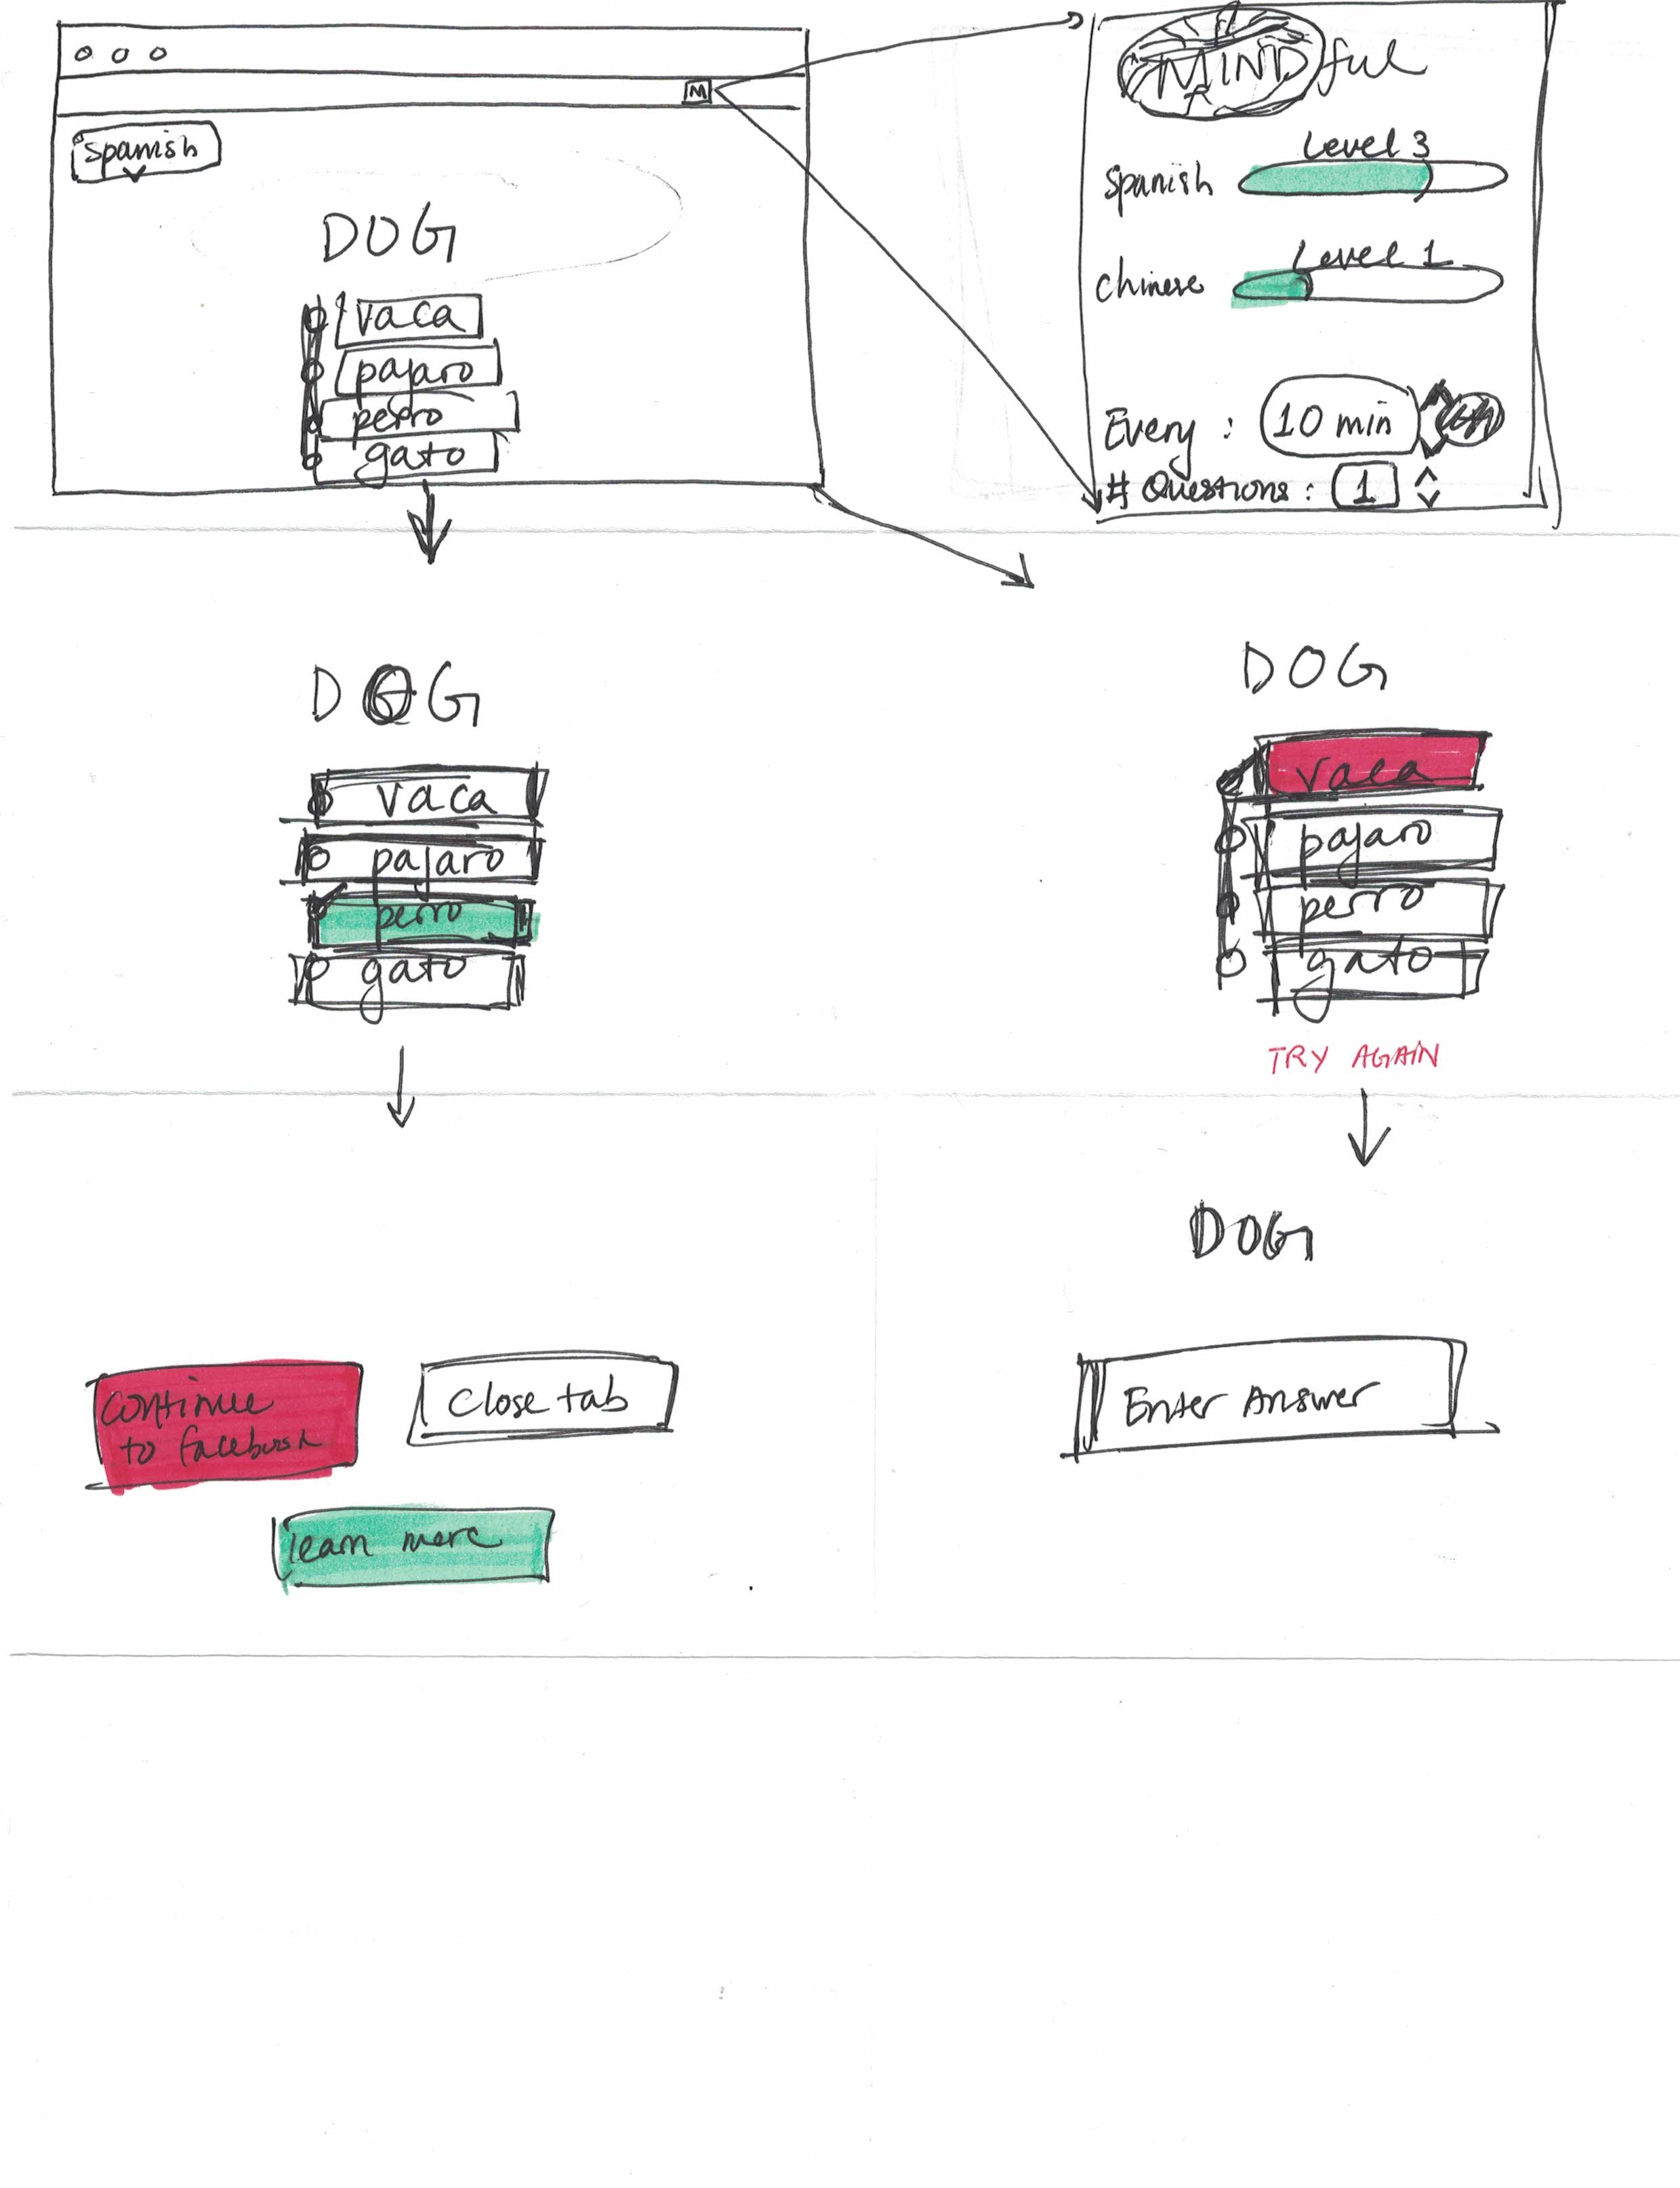 M
spanish
DOG
vaca
pajaro
perro
gato
MINDful
Level 3
spanish
Level 1
chinese
Every : 10 min
# Questions : 1
DOG
vaca
pajaro
perro
gato
DOG
vaca
pajaro
perro
gato
TRY AGAIN
continue
to facebook
Close tab
learn more
DOG
Enter Answer